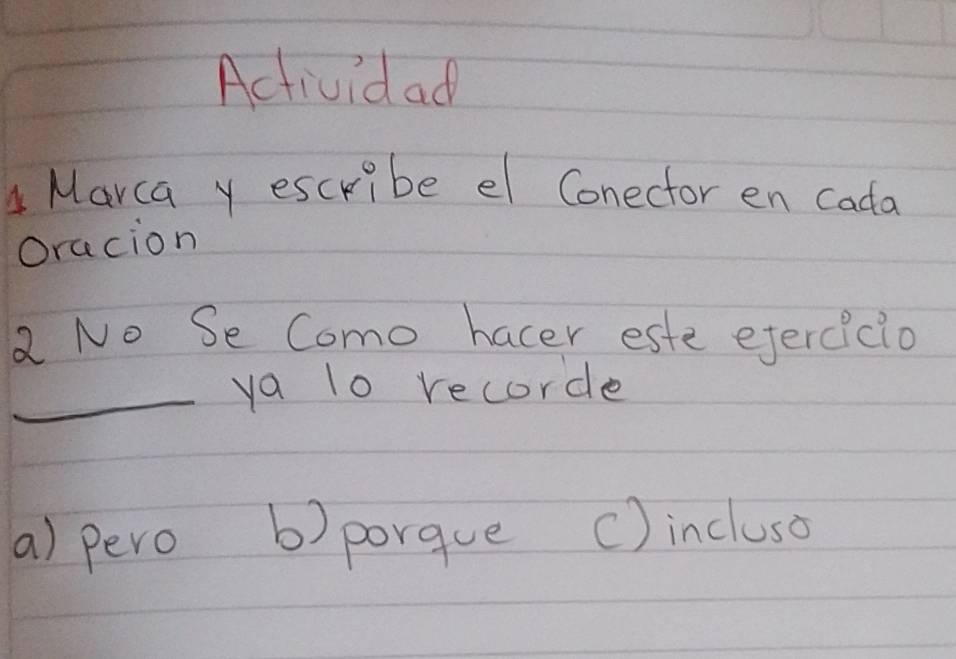 Actividad
1 Marca y escribe el Conector en cada
Oracion
2 No Se Como hacer este ejercicio
______ ya lo recorde
a) pero b) porque c) incluso